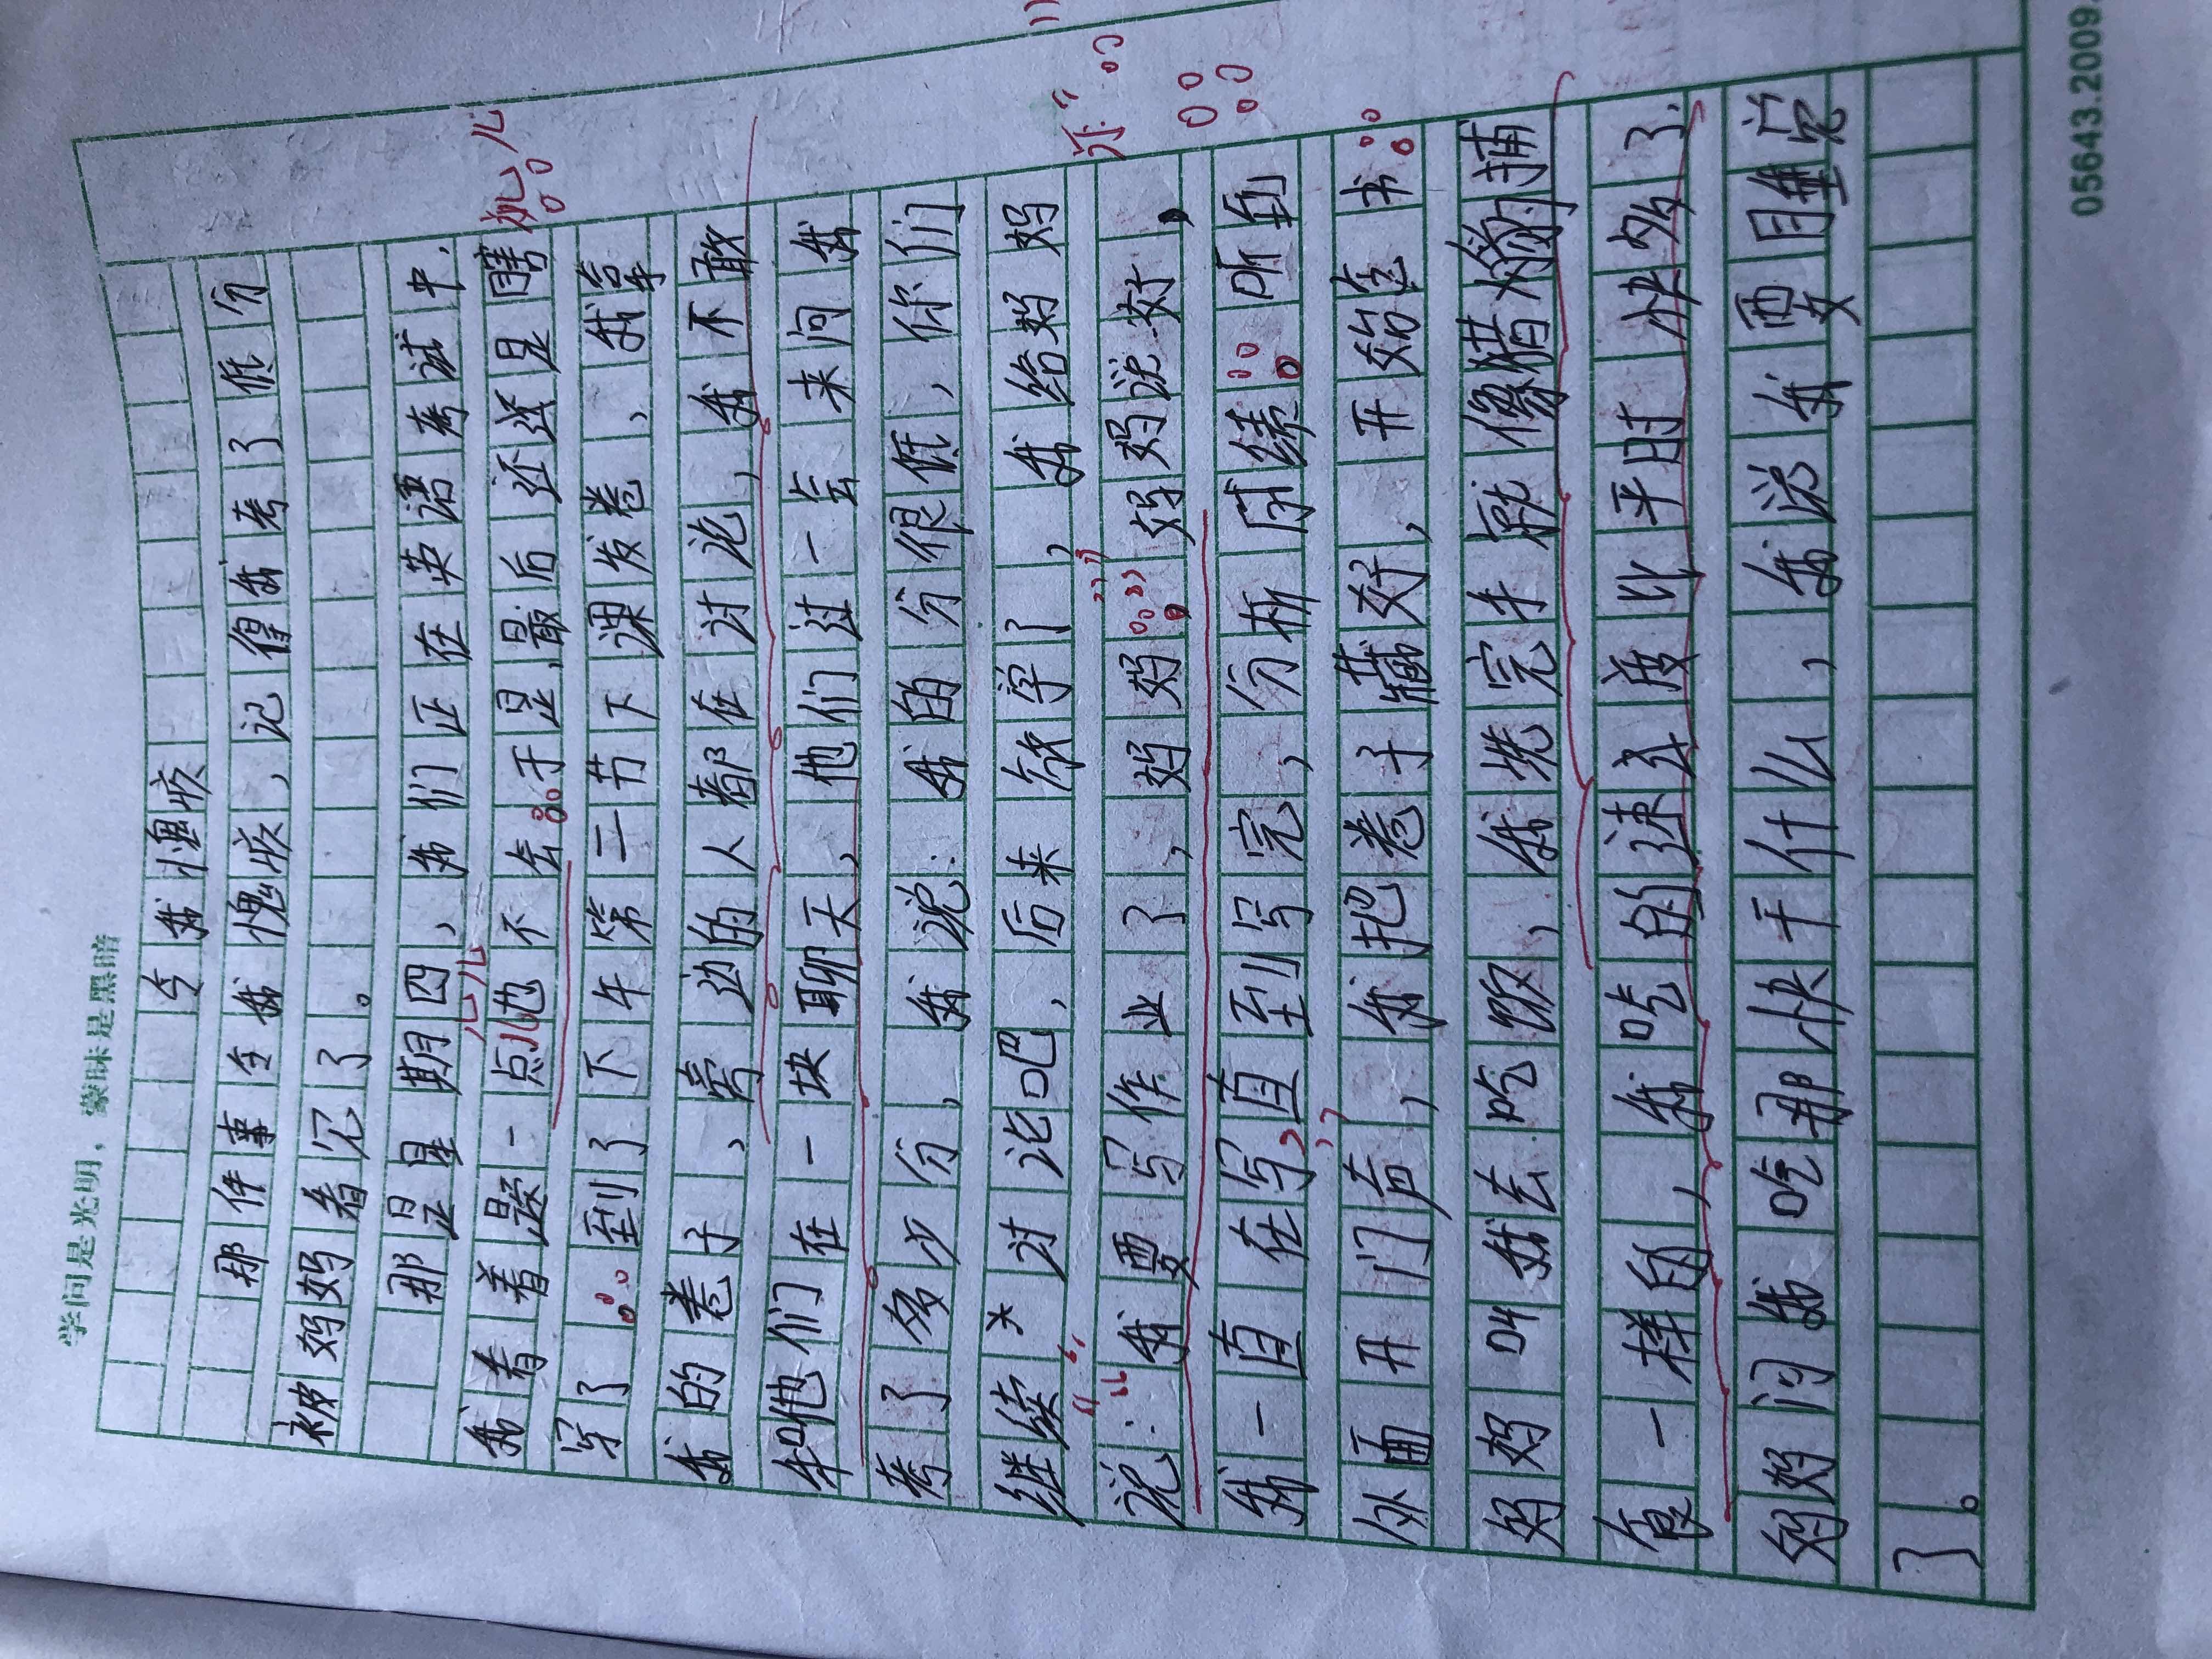 学问是光明，蒙昧是黑暗
令我愧疚
那件事令我愧疚，记得我考了低分
被妈妈看见了。
那是星期四，我们正在英语考试中，
我看着题一点儿也不会。于是，最后还还是瞎
写了。到了下午第二节下课发卷，我拿
我的卷子，旁边的人都在讨论，我不敢
和他们在一块聊天，他们过一会来问我
考了多少分，我说：我的分很低，你们
继续讨论吧，后来放学了，我给妈妈
说：“我要写作业了，妈妈。”妈妈说好，
我一直在写，直到写完，分析成绩。听到
外面开门声，我把卷子藏好，开始看书。
妈妈叫我去吃饭，我洗完手就像猎豹捕
食一样的，我吃的速度比平时快多了，
妈妈问我吃那快干什么，我说我要睡觉
了。
05643.2009.